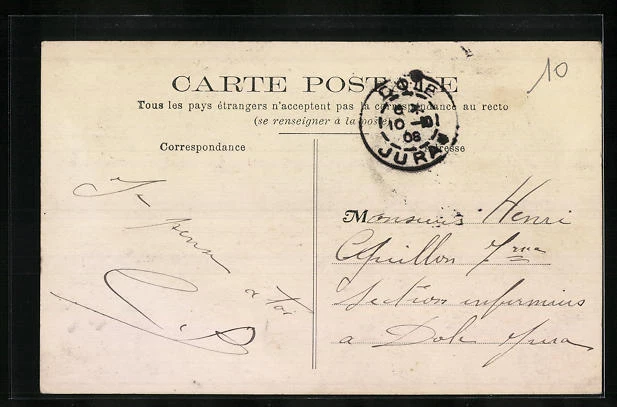 10
CARTE POSTALE
Tous les pays étrangers n'acceptent pas la correspondance au recto
(se renseigner à la poste)
DOLE
10
08
JURA
Correspondance
Adresse
Je pense
a toi
Monsieur Henri
7me
Section infirmiers
a Dole Jura